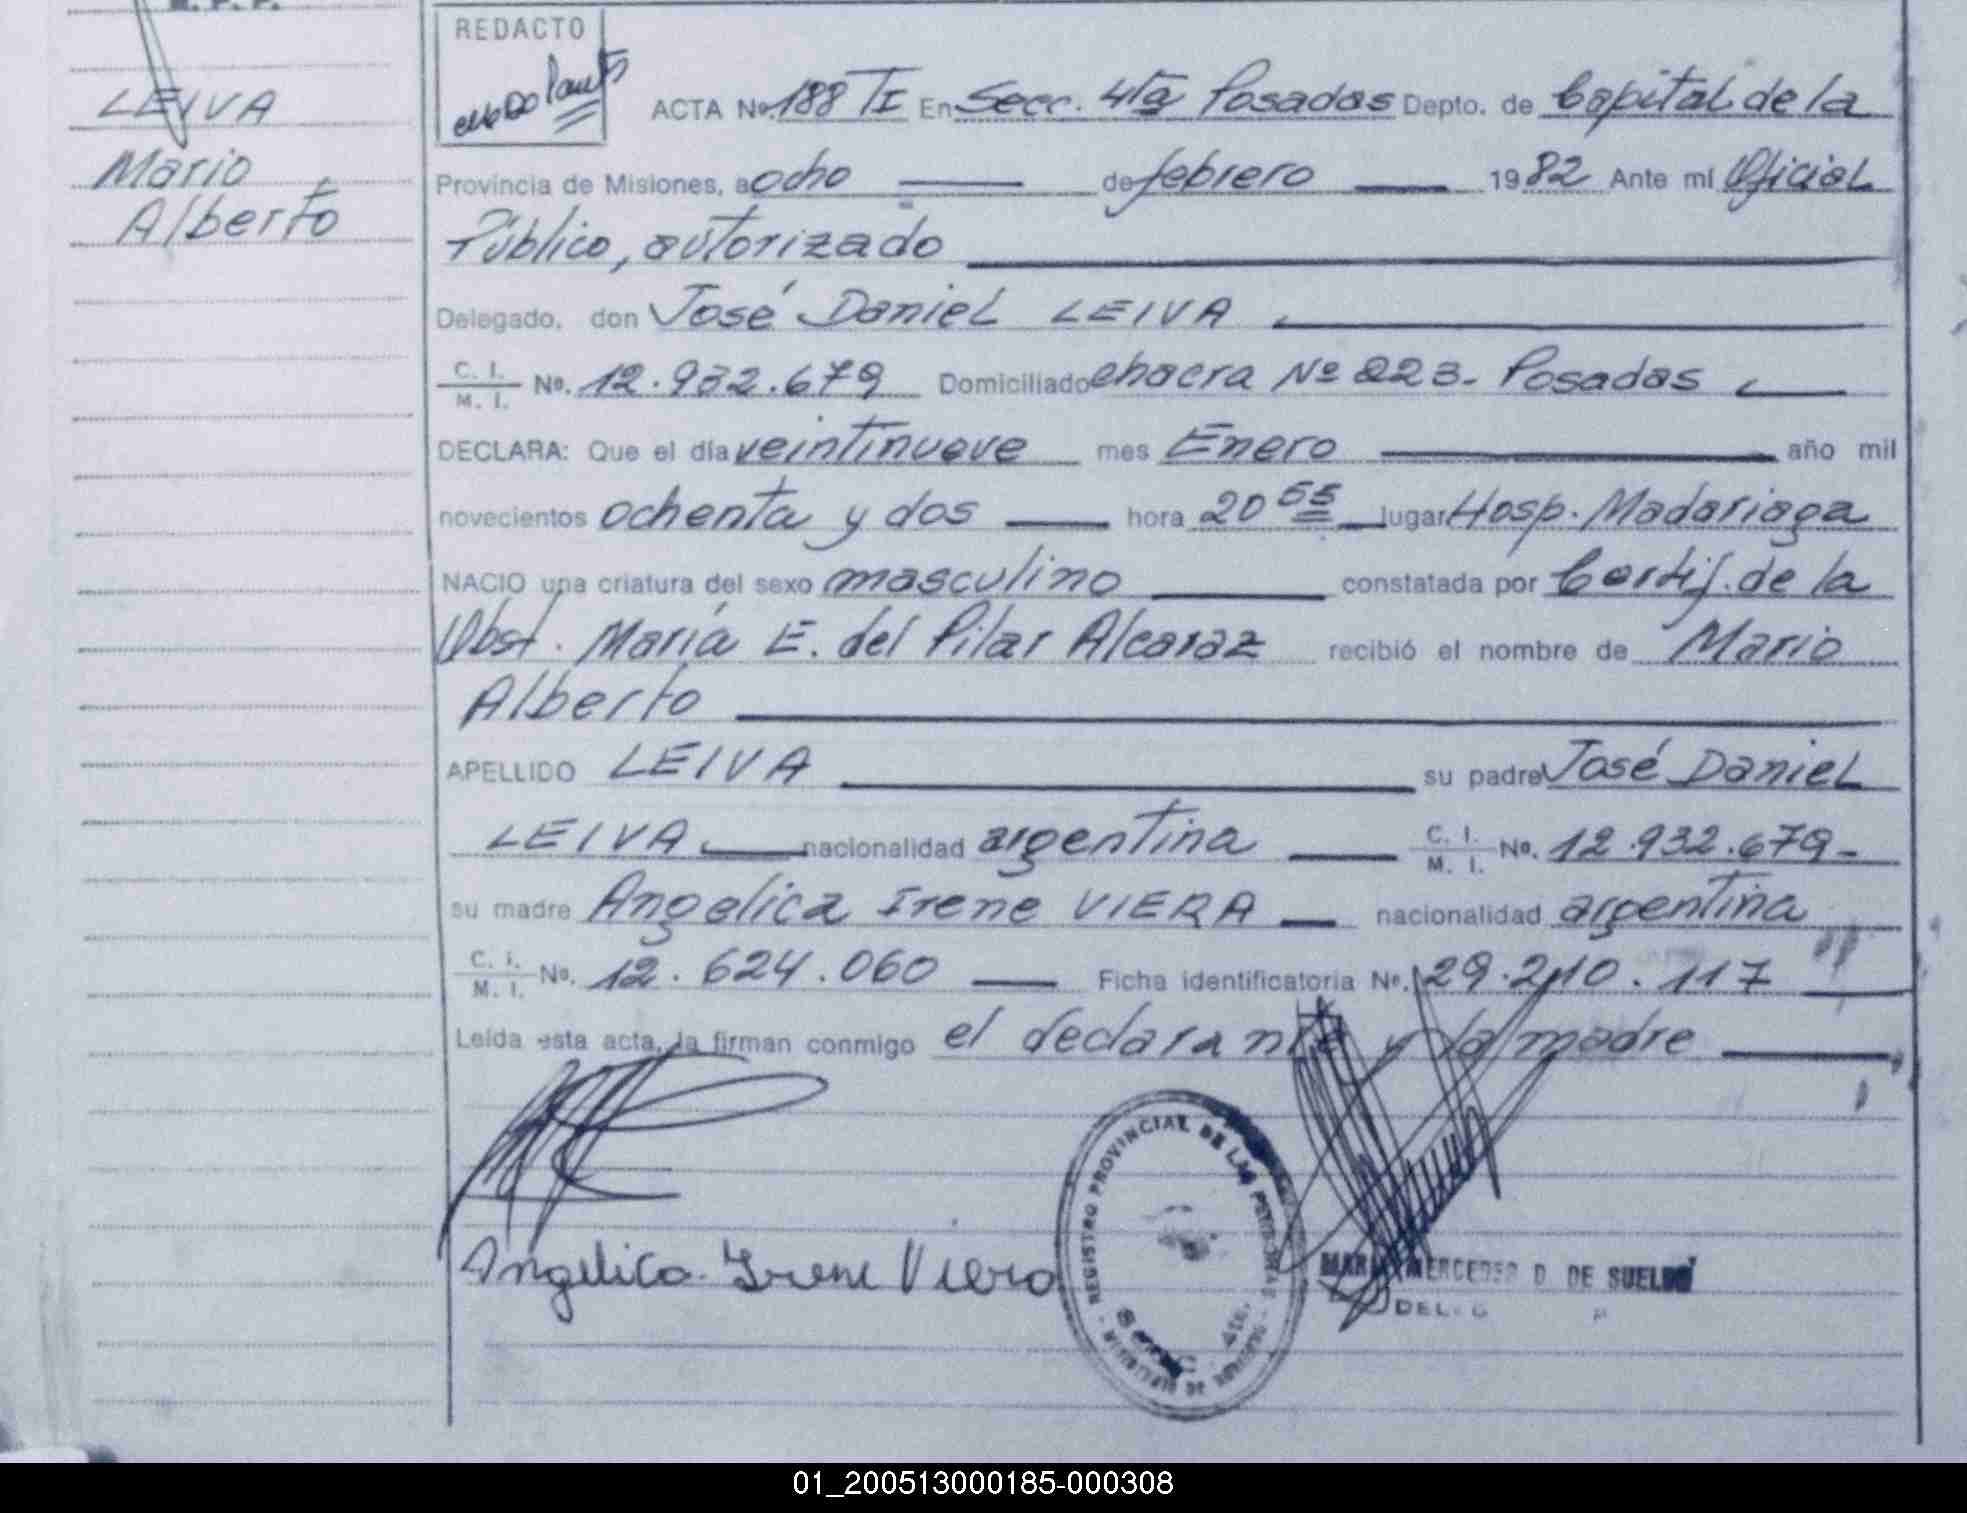 REDACTO
LEIVA
Mario
Alberto
ACTA Nº. 188 TI En Secc. 4ta Posadas Depto. de Capital de la
Provincia de Misiones, a ocho de febrero 1982 Ante mi Oficial
Público, autorizado
Delegado, don José Daniel LEIVA
C. I.
M. I. Nº. 12.932.679 Domiciliado chacra Nº 223. Posadas
DECLARA: Que el día veintinueve mes Enero año mil
novecientos ochenta y dos hora 20 55 lugar Hosp. Madariaga
NACIO una criatura del sexo masculino constatada por Certif. de la
Obst. María E. del Pilar Alcaraz recibió el nombre de Mario
Alberto
APELLIDO LEIVA su padre José Daniel
LEIVA nacionalidad argentina C. I. M. I. Nº. 12.932.679-
su madre Angelica Irene VIERA nacionalidad argentina
C. I. M. I. Nº. 12.624.060 Ficha identificatoria Nº. 29.210.117
Leída esta acta, la firman conmigo el declarante y la madre
REGISTRO PROVINCIAL DE LAS PERSONAS
Angelica Irene Viera
MARIA MERCEDES D. DE SUELDO
01_200513000185-000308